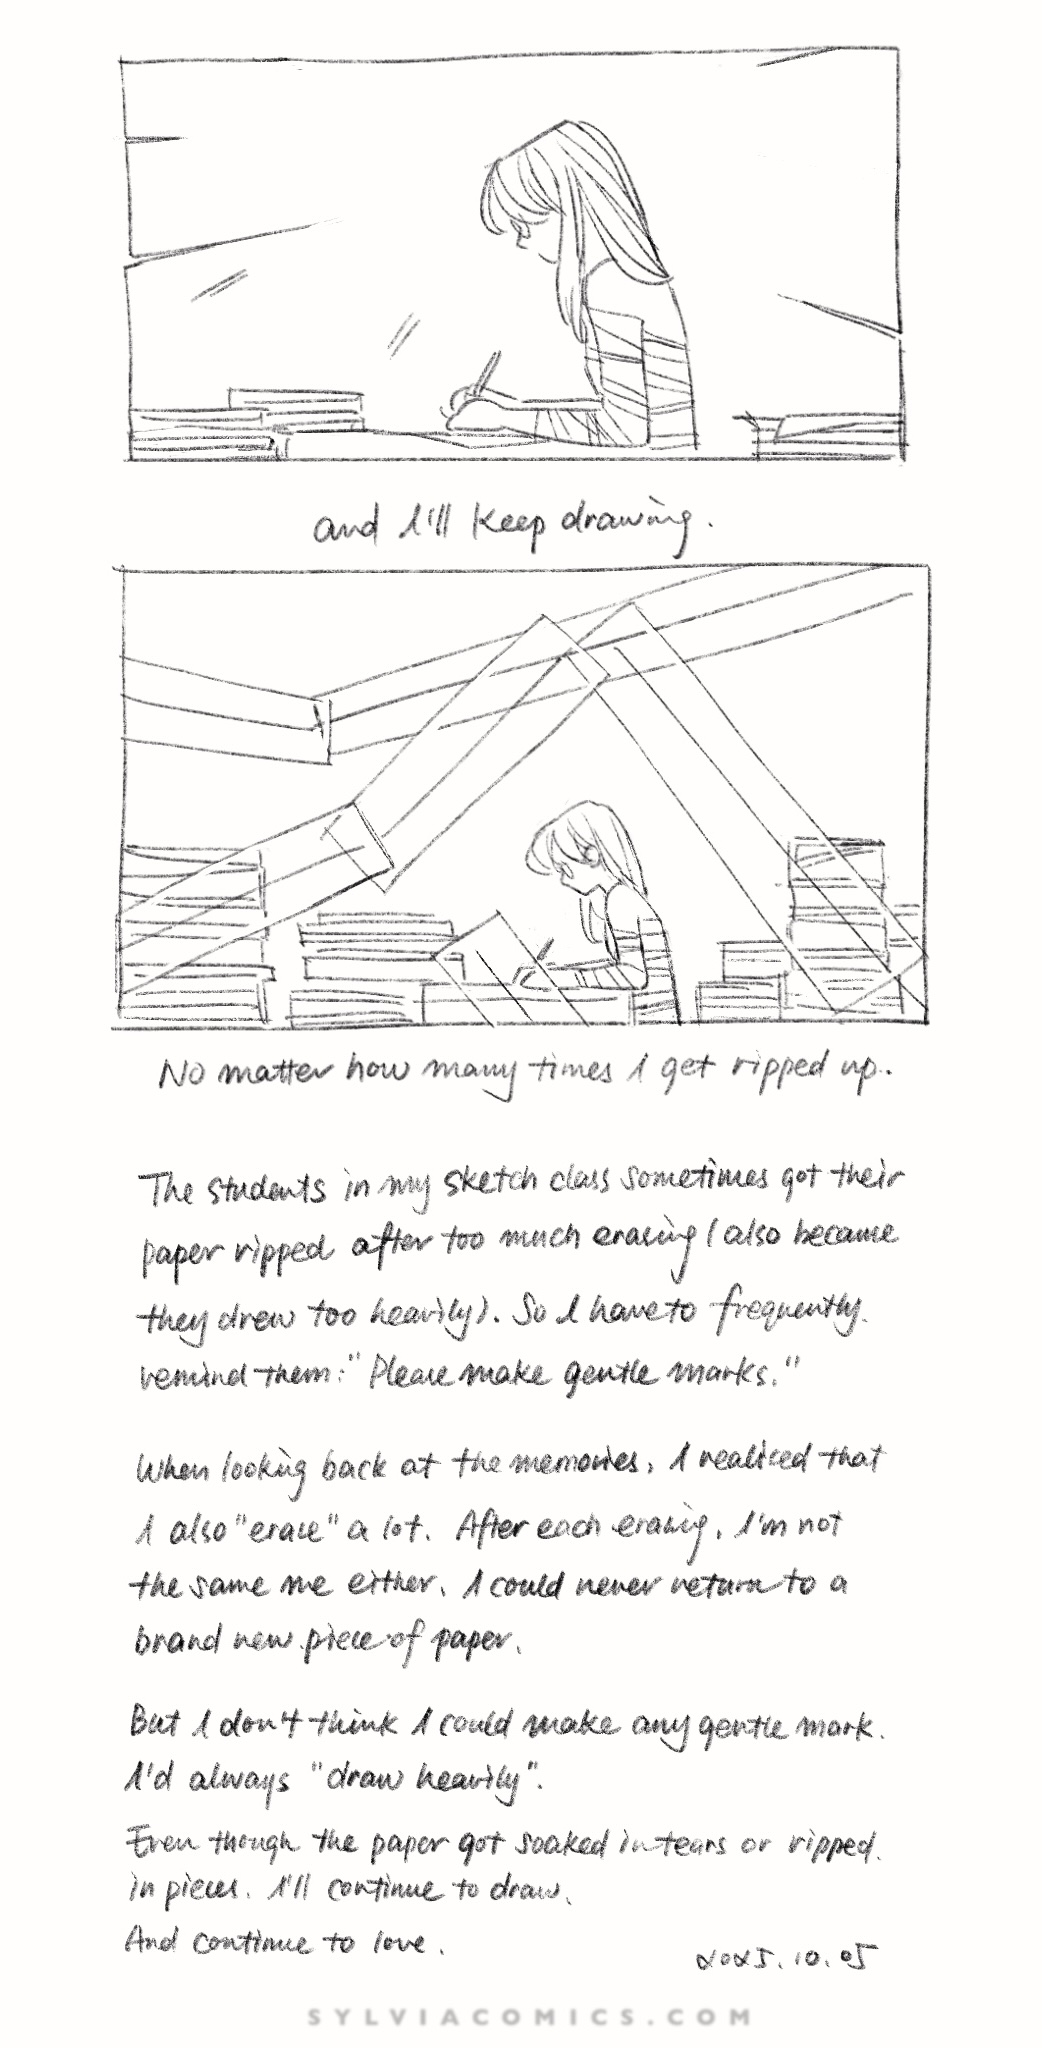 and I'll keep drawing.
No matter how many times I get ripped up.
The students in my sketch class sometimes got their
paper ripped after too much erasing (also because
they drew too heavily). So I have to frequently
remind them: "Please make gentle marks."
When looking back at the memories, I realized that
I also "erase" a lot. After each erasing, I'm not
the same me either. I could never return to a
brand new piece of paper.
But I don't think I could make any gentle mark.
I'd always "draw heavily".
Even though the paper got soaked in tears or ripped
in pieces. I'll continue to draw.
And continue to love.
2025.10.05
SYLVIACOMICS.COM